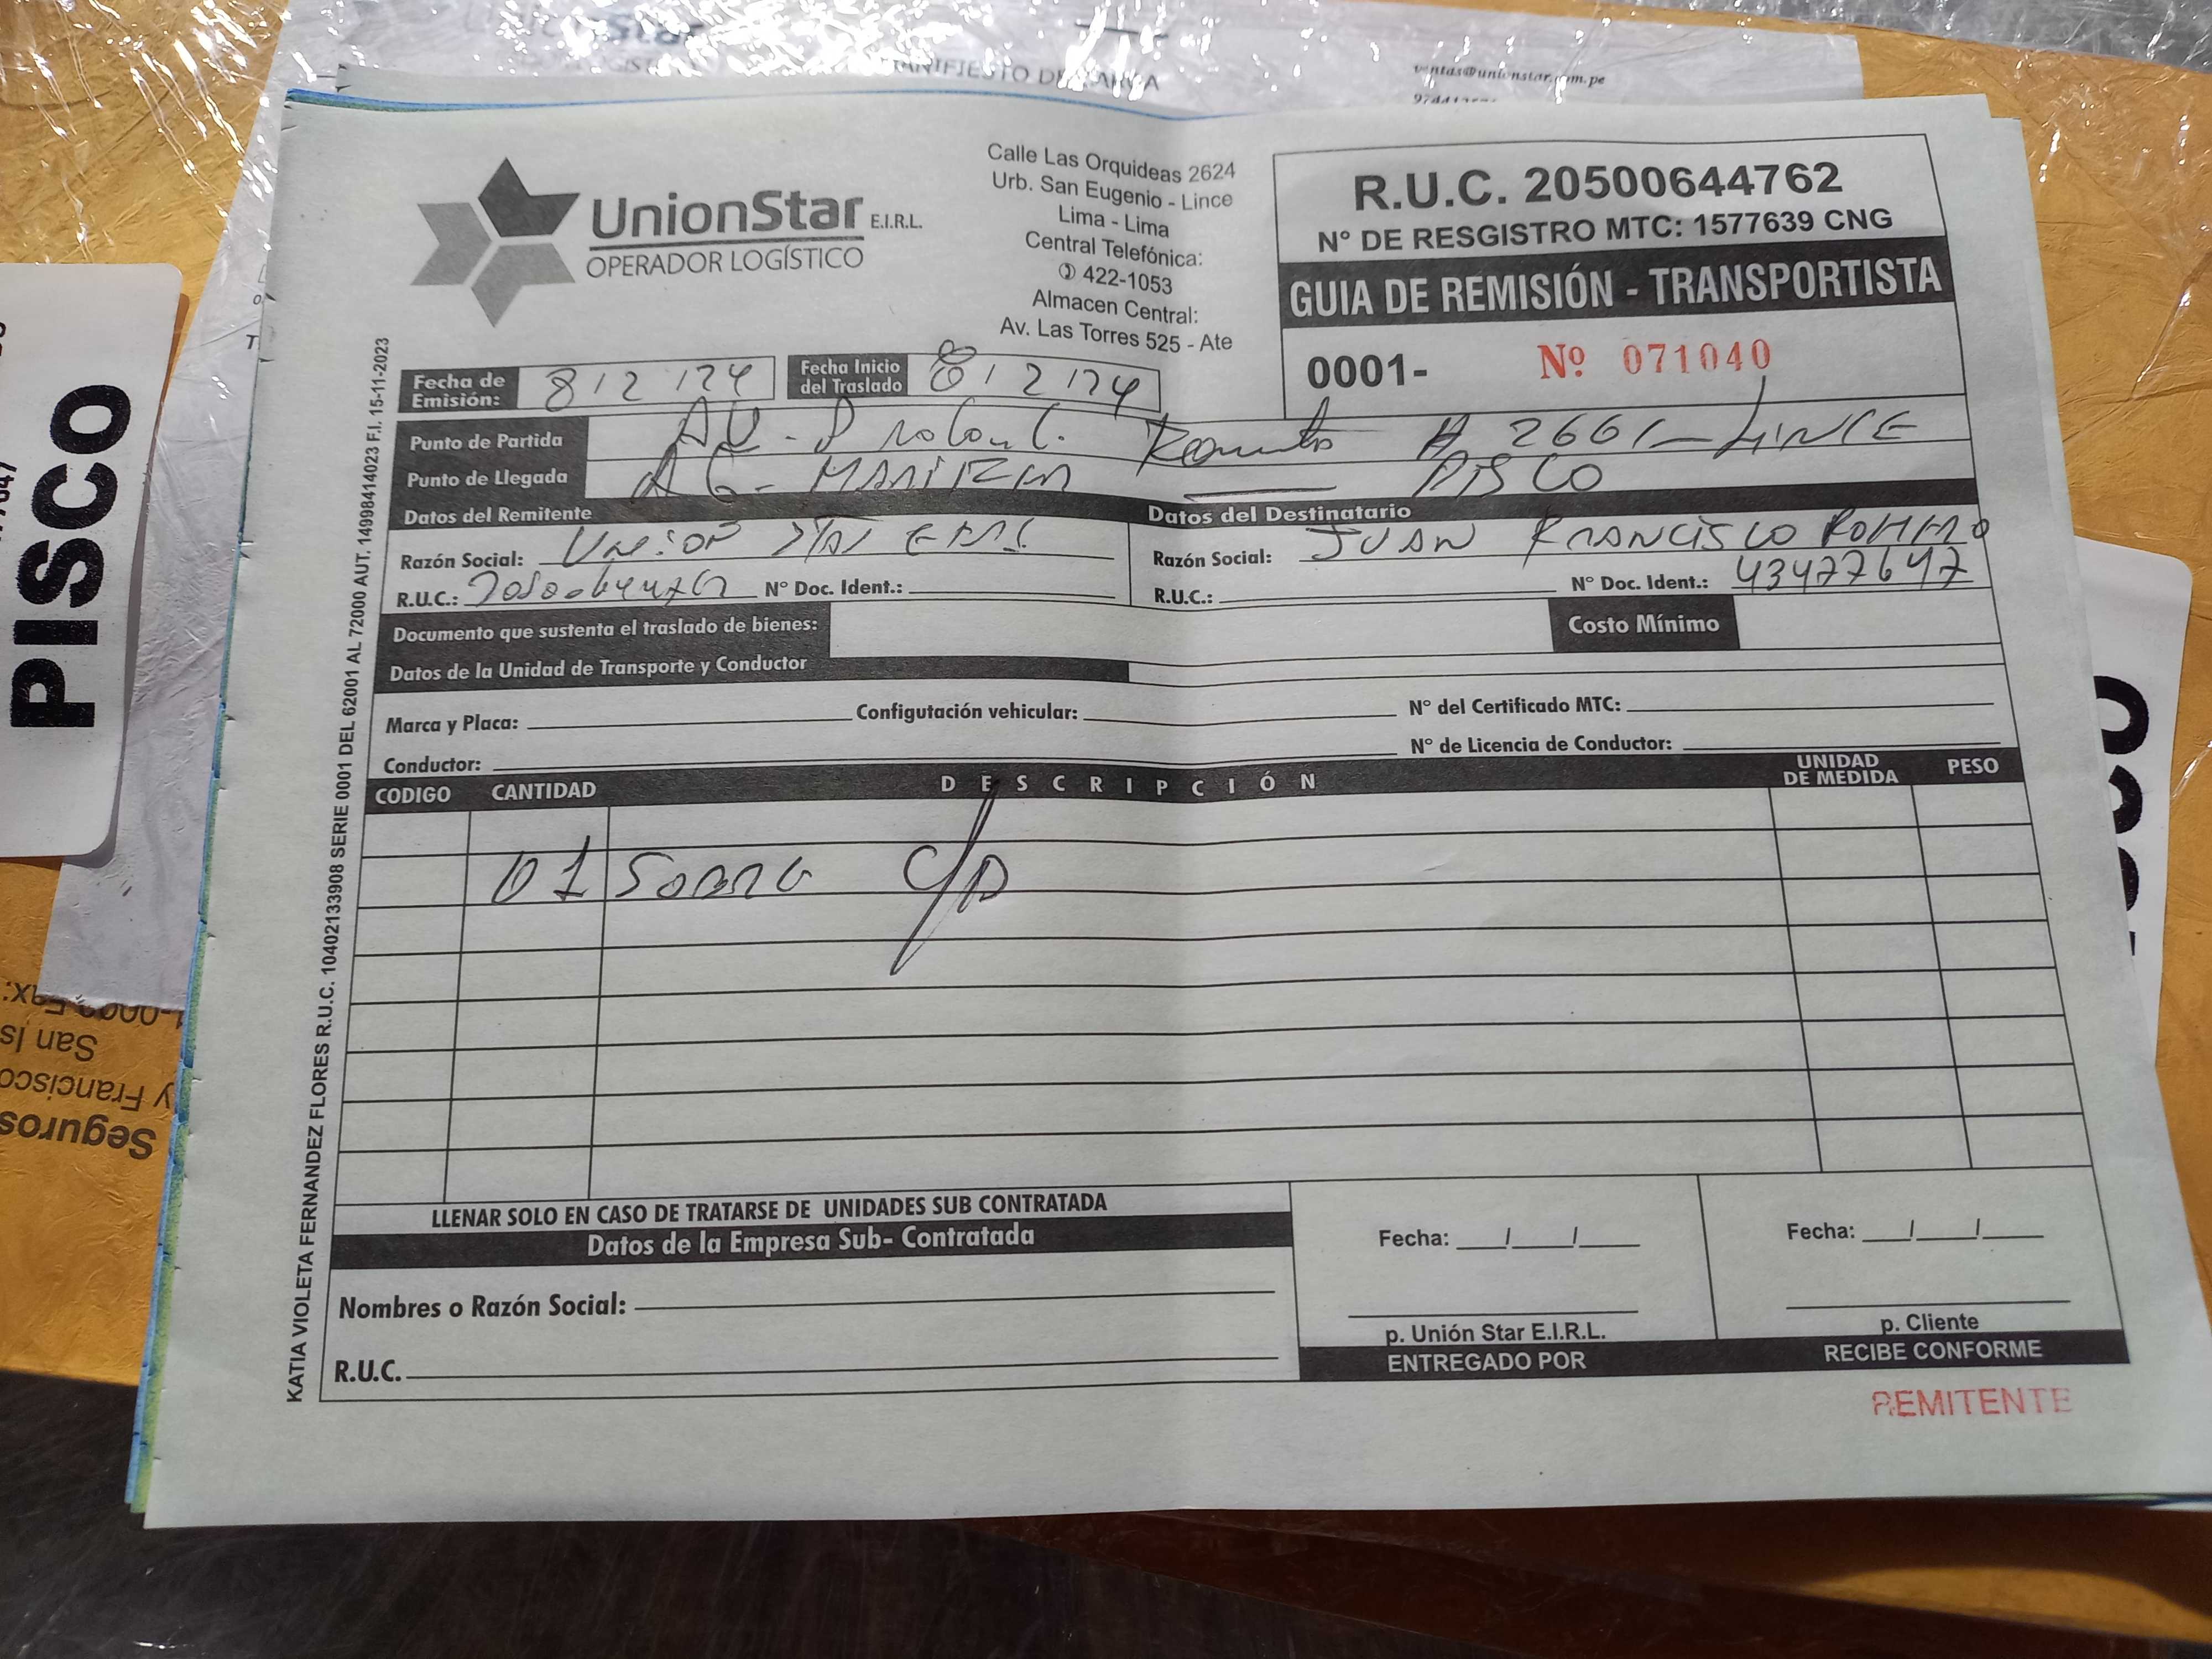 MANIFIESTO DE CARGA
ventas@unionstar.com.pe
UnionStar E.I.R.L.
OPERADOR LOGÍSTICO
Calle Las Orquideas 2624
Urb. San Eugenio - Lince
Lima - Lima
Central Telefónica:
422-1053
Almacen Central:
Av. Las Torres 525 - Ate
R.U.C. 20500644762
N° DE RESGISTRO MTC: 1577639 CNG
GUIA DE REMISIÓN - TRANSPORTISTA
0001- Nº 071040
Fecha de Emisión: 8/2/24 Fecha Inicio del Traslado 8/2/24
Punto de Partida AV. # 2661 - LINCE
Punto de Llegada AG- PISCO
Datos del Remitente Datos del Destinatario
Razón Social: Union Razón Social: JUAN FRANCISCO
R.U.C.: 20500644762 N° Doc. Ident.: R.U.C.: N° Doc. Ident.: 43477647
Documento que sustenta el traslado de bienes: Costo Mínimo
Datos de la Unidad de Transporte y Conductor
Marca y Placa: Configutación vehicular: N° del Certificado MTC:
Conductor: N° de Licencia de Conductor:
CODIGO CANTIDAD DESCRIPCIÓN UNIDAD DE MEDIDA PESO
01 SOBRE C/D
LLENAR SOLO EN CASO DE TRATARSE DE UNIDADES SUB CONTRATADA
Datos de la Empresa Sub- Contratada
Nombres o Razón Social:
R.U.C.
Fecha: / /
p. Unión Star E.I.R.L.
ENTREGADO POR
Fecha: / /
p. Cliente
RECIBE CONFORME
REMITENTE
KATIA VIOLETA FERNANDEZ FLORES R.U.C. 10402133908 SERIE 0001 DEL 62001 AL 72000 AUT. 14998414023 F.I. 15-11-2023
PISCO
Seguros
y Francisco
San Is